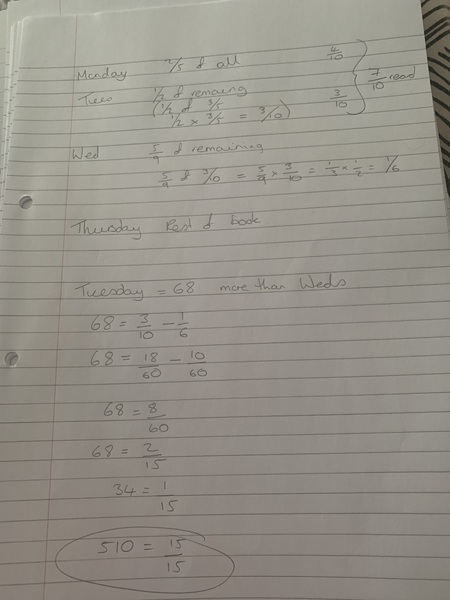 Monday 2/5 of all 4/10
Tues 1/2 of remaing
(1/2 of 3/5 3/10 7/10 read
1/2 x 3/5 = 3/10)
Wed 5/9 of remaining
5/9 of 3/10 = 5/9 x 3/10 = 1/3 x 1/2 = 1/6
Thursday Rest of book
Tuesday = 68 more than Weds
68 = 3/10 - 1/6
68 = 18/60 - 10/60
68 = 8/60
68 = 2/15
34 = 1/15
510 = 15/15